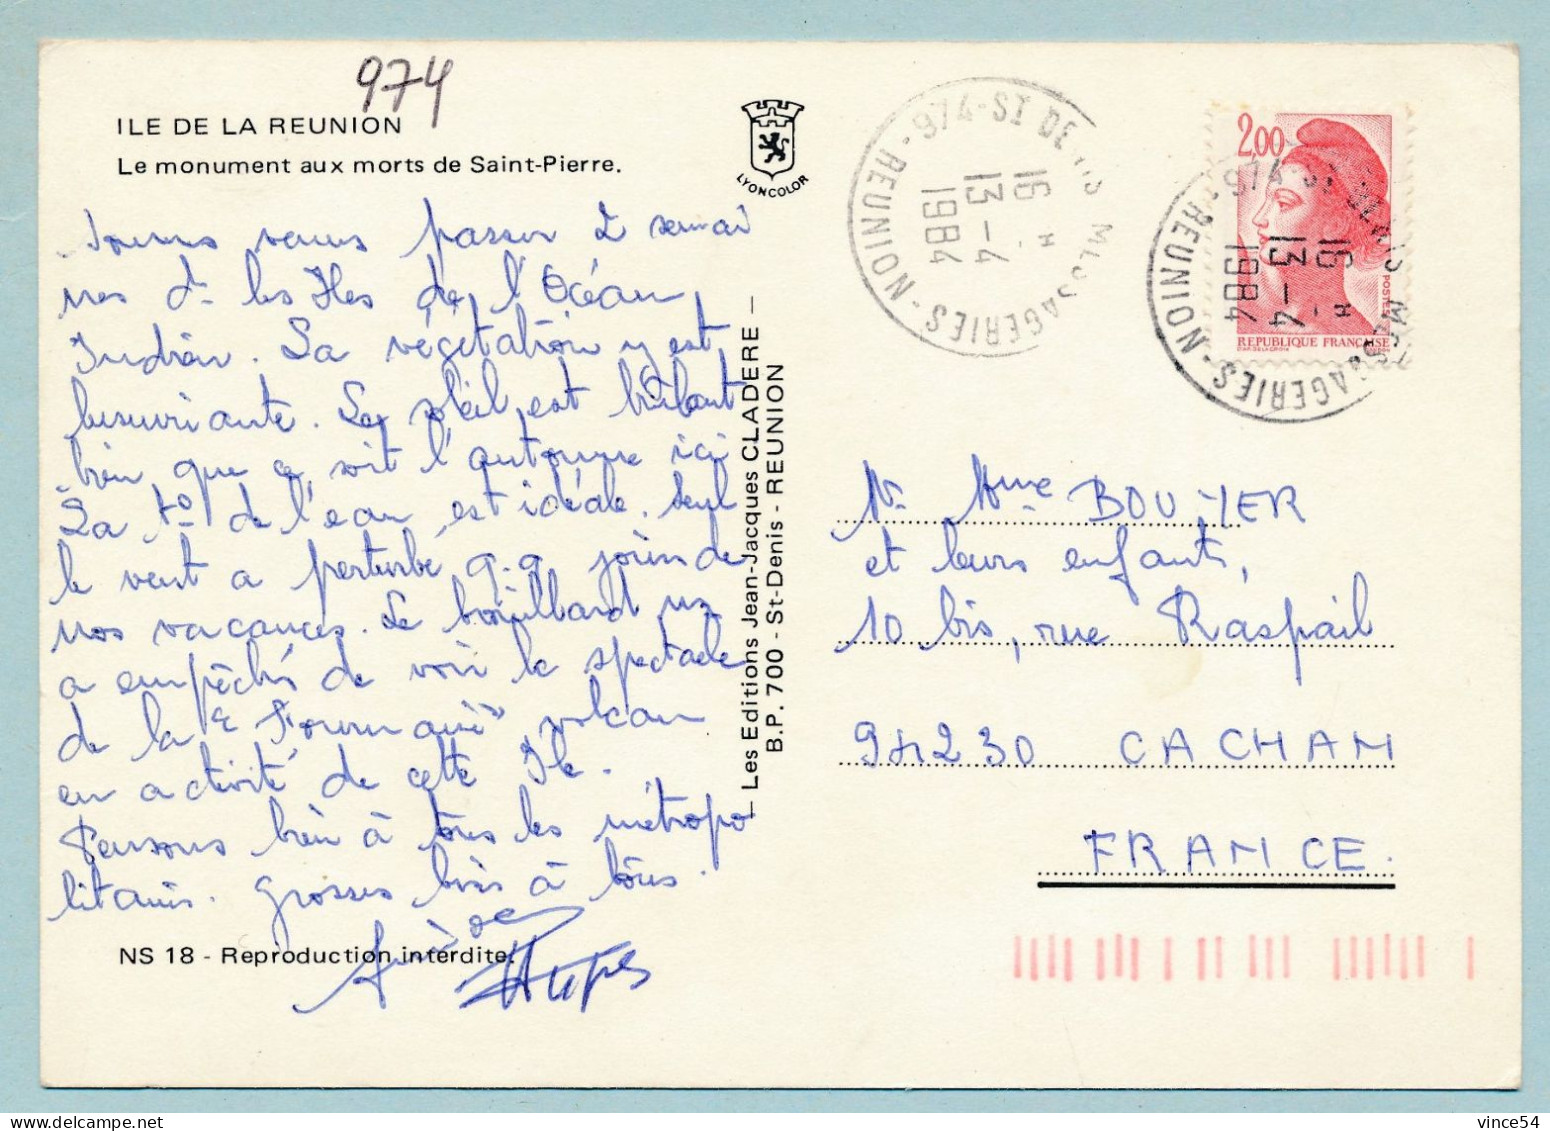 974
ILE DE LA REUNION
Le monument aux morts de Saint-Pierre.
LYONCOLOR
Sommes venus passer 2 semai
nes ds les Iles de l'Océan
Indien. La végétation y est
luxuriante. Le soleil est brûlant
bien que ce soit l'automne ici
La t° de l'eau est idéale. Seul
le vent a perturbé q.q joies de
nos vacances. Le brouillard ns
a empêchés de voir le spectacle
de la "Fournaise" volcan
en activité de cette Ile.
Pensons bien à tous les métropo
litains. Grosses bises à tous.
NS 18 - Reproduction interdite.
Les Editions Jean-Jacques CLADERE
B.P. 700 - St-Denis - REUNION
974-ST DENIS MESSAGERIES - REUNION -
16 H
13-4
1984
2,00
POSTES
REPUBLIQUE FRANÇAISE
974 ST DENIS MESSAGERIES - REUNION
16 H
13-4
1984
Mr Mme BOUYER
et leurs enfants,
10 bis, rue Raspail
94230 CACHAN
FRANCE.
vince54